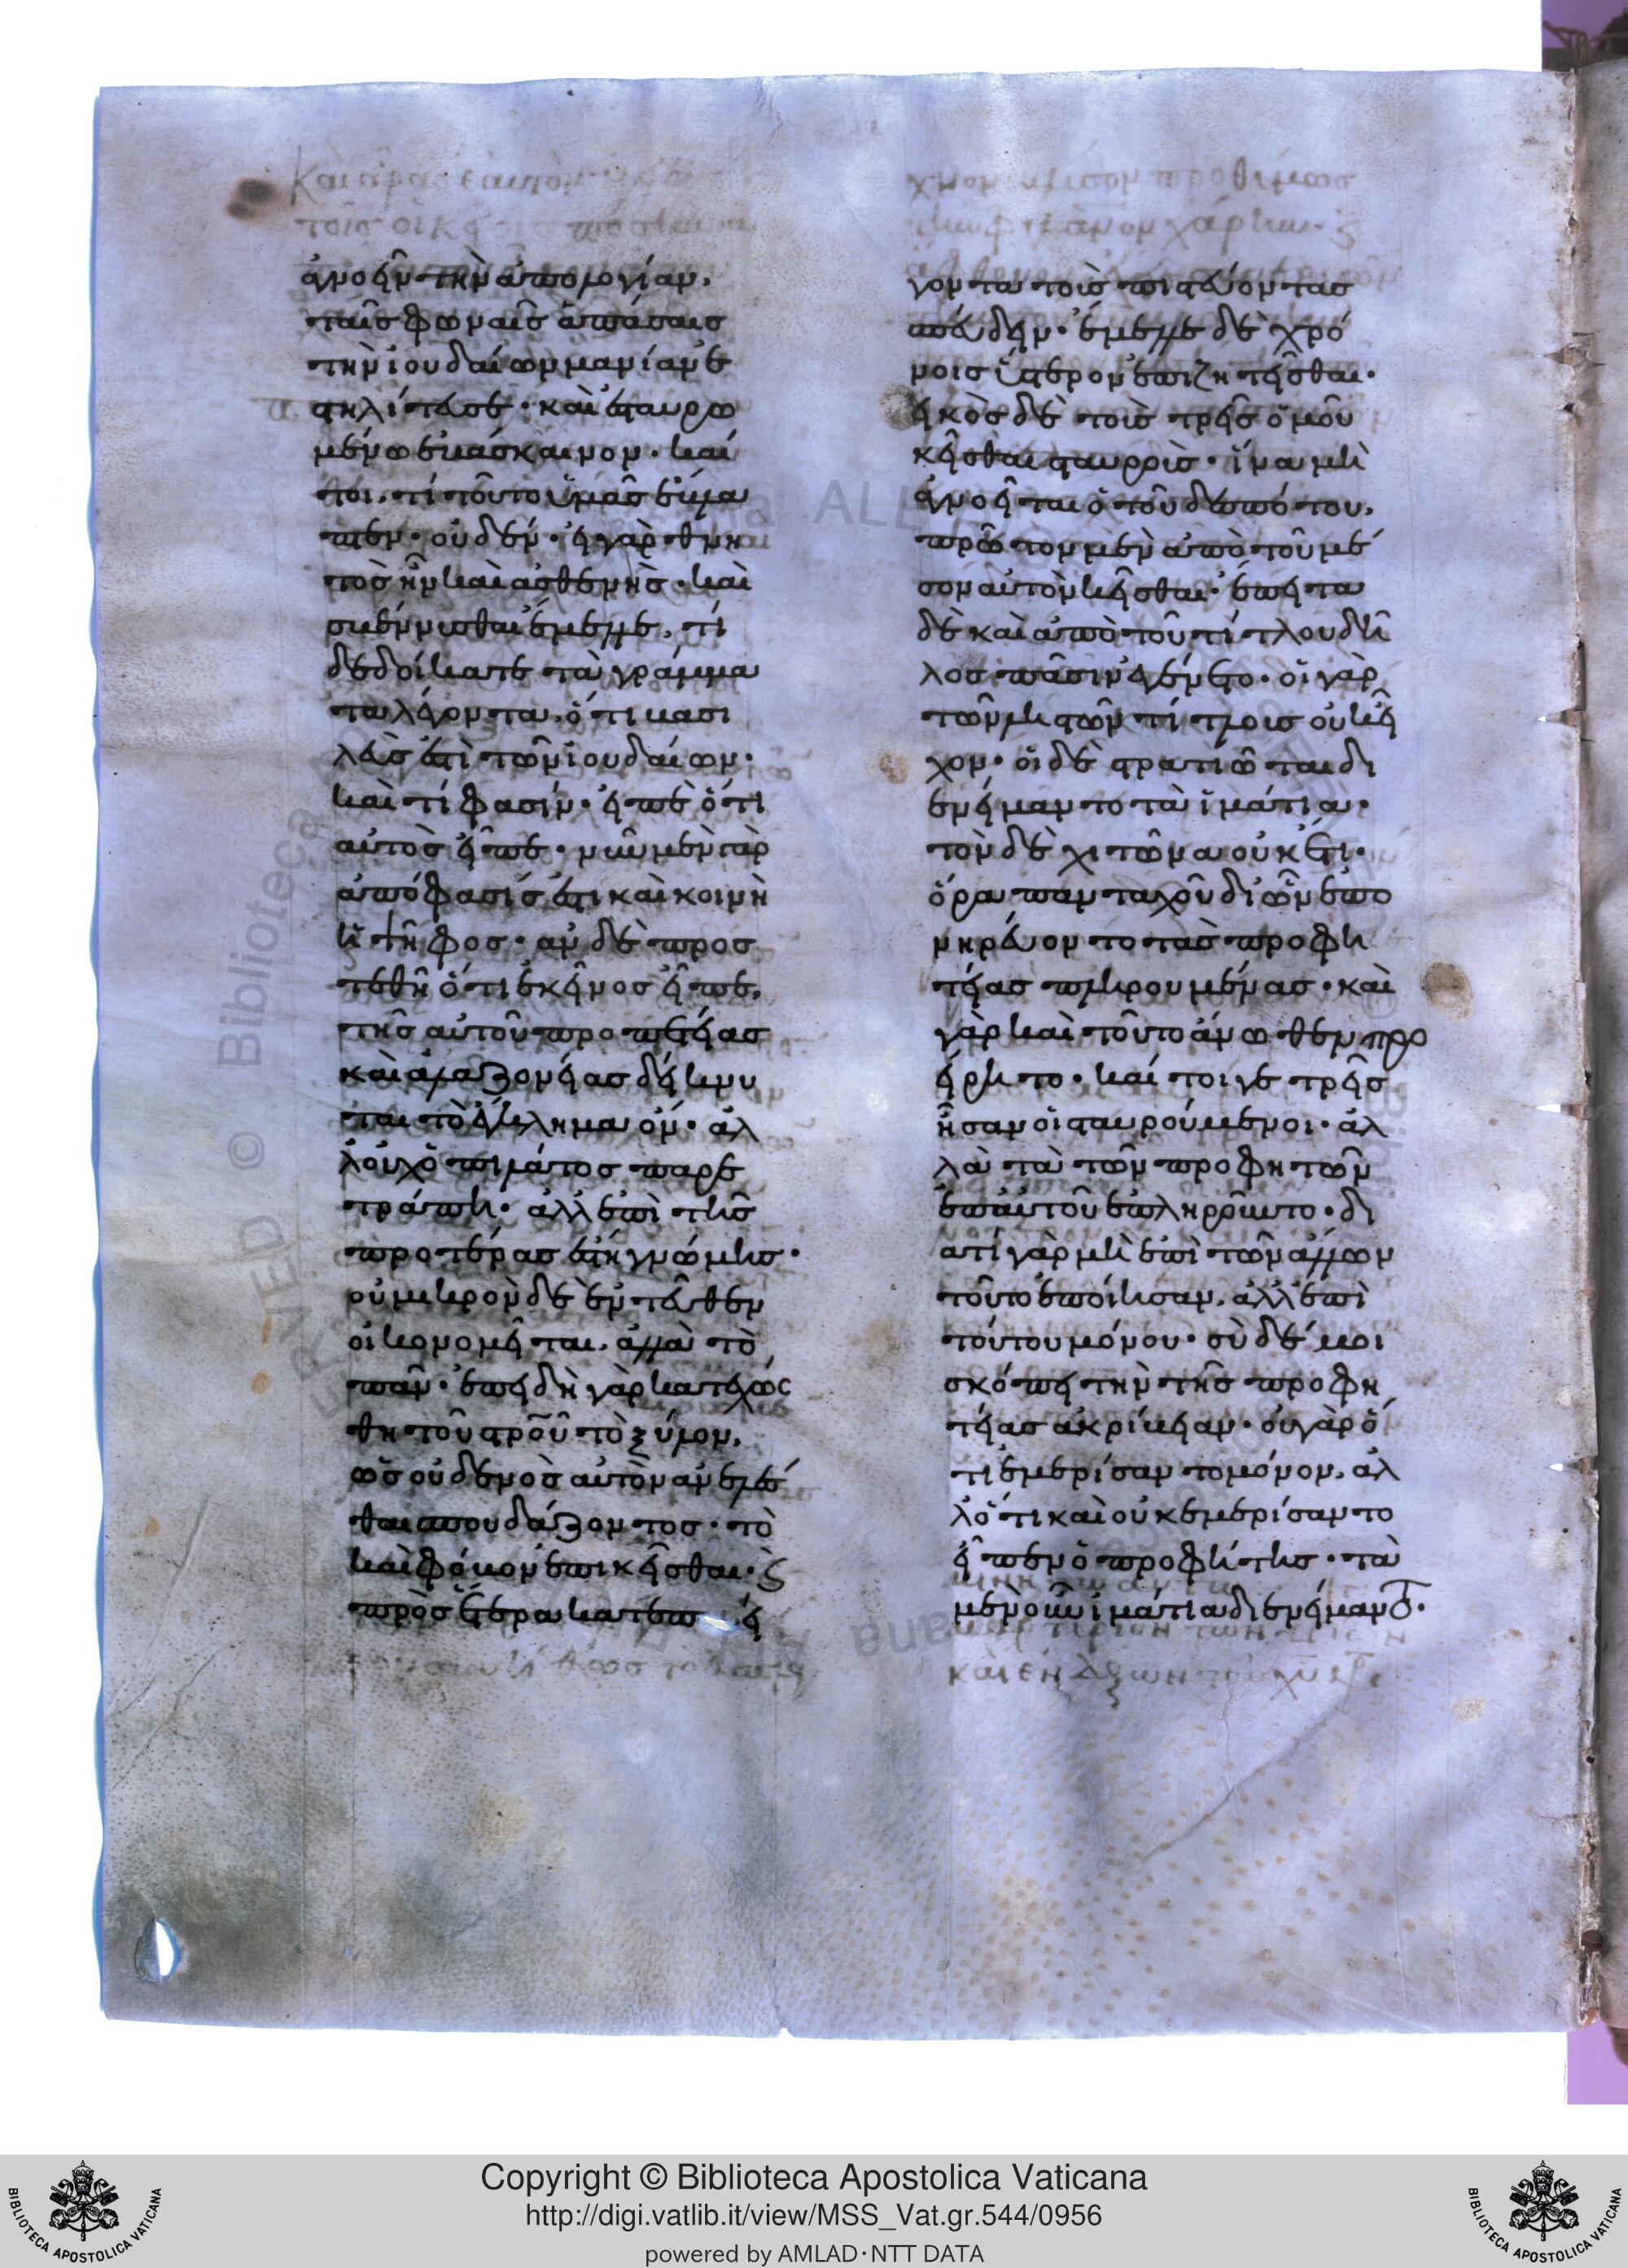 ἀγνοεῖν τὴν ἀπολογίαν,
ταῖς φωναῖς ἁπάσαις
τὴν ἰουδαίων μανίαν ἐ
στηλίτευσε· καὶ σταυρω
μένω ἐβάσκαινον· καί
τοι τί τοῦτο ὑμᾶς ἔβλα
πτεν· οὐδέν· εἰ γὰρ θνη
τὸς ἦν καὶ ἀσθενὴς· καὶ
σβέννυσθαι ἔμελλε, τί
δεδοίκατε τὰ γράμμα
τα λέγοντα, ὅτι βασι
λεύς ἐστι τῶν ἰουδαίων·
καὶ τί φασίν· εἰπὲ ὅτι
αὐτὸς εἶπε· νῦν μὲν γὰρ
ἀπόφασίς ἐστι καὶ κοινὴ
ψῆφος· ἂν δὲ προσ
τεθῆ ὅτι ἐκεῖνος εἶπε,
τῆς αὐτοῦ προπετείας
καὶ ἀλαζονείας δείκνυ
ται τὸ ἔγκλημα ὄν· ἀλ
λ οὐχ ὁ πιλάτος παρε
τράπη· ἀλλ ἐπὶ τῆς
προτέρας ἔστη γνώμης·
οὐ μικρὸν δὲ ἐντεῦθεν
οἰκονομεῖται, ἀλλὰ τὸ
πᾶν· ἐπειδὴ γὰρ κατεχώσ
θη τοῦ στροῦ τὸ ξύλον,
ὡς οὐδενὸς αὐτὸν ἀνελέ
σθαι σπουδάζοντος· τὸ
καὶ φόβον ἐπικεῖσθαι· ϛ
πρὸς ἕτερα κατεπ εί
γοντα τοὺς πιστεύοντας
σπεύδειν· ἔμελλε δὲ χρό
νοις ὕστερον ἐπιζητεῖσθαι·
εἰκὸς δὲ τοὺς τρεῖς ὁμοῦ
κεῖσθαι σταυροὺς· ἵνα μὴ
ἀγνοεῖται ὁ τοῦ δεσπότου,
πρῶτον μὲν ἀπὸ τοῦ μέ
σον αὐτὸν κεῖσθαι· ἔπειτα
δὲ καὶ ἀπὸ τοῦ τίτλου δῆ
λος πᾶσιν ἐγένετο· οἱ γὰρ
τῶν ληστῶν τίτλους οὐκ εἶ
χον· οἱ δὲ στρατιῶται δι
ενείμαντο τὰ ἱμάτια·
τὸν δὲ χιτῶνα οὐκέτι·
ὅρα πανταχοῦ δι ὧν ἐπο
νηρεύοντο τὰς προφη
τείας πληρουμένας· καὶ
γὰρ καὶ τοῦτο ἄνωθεν προ
είρητο· καί τοι γε τρεῖς
ἦσαν οἱ σταυρούμενοι· ἀλ
λὰ τὰ τῶν προφητῶν
ἐπ αὐτοῦ ἐπληροῦντο· δι
ατί γὰρ μὴ ἐπὶ τῶν ἄλλων
τοῦτο ἐποίησαν, ἀλλ ἐπὶ
τούτου μόνου· σὺ δέ μοι
σκόπει τὴν τῆς προφη
τείας ἀκρίβειαν· οὐ γὰρ ὅ
τι ἐμερίσαντο μόνον, ἀλ
λ ὅτι καὶ οὐκ ἐμερίσαντο
εἶπεν ὁ προφήτης· τὰ
μὲν οὖν ἱμάτια διενείμαντο·
Copyright © Biblioteca Apostolica Vaticana
http://digi.vatlib.it/view/MSS_Vat.gr.544/0956
powered by AMLAD·NTT DATA
BIBLIOTECA APOSTOLICA VATICANA
BIBLIOTECA APOSTOLICA VATICANA